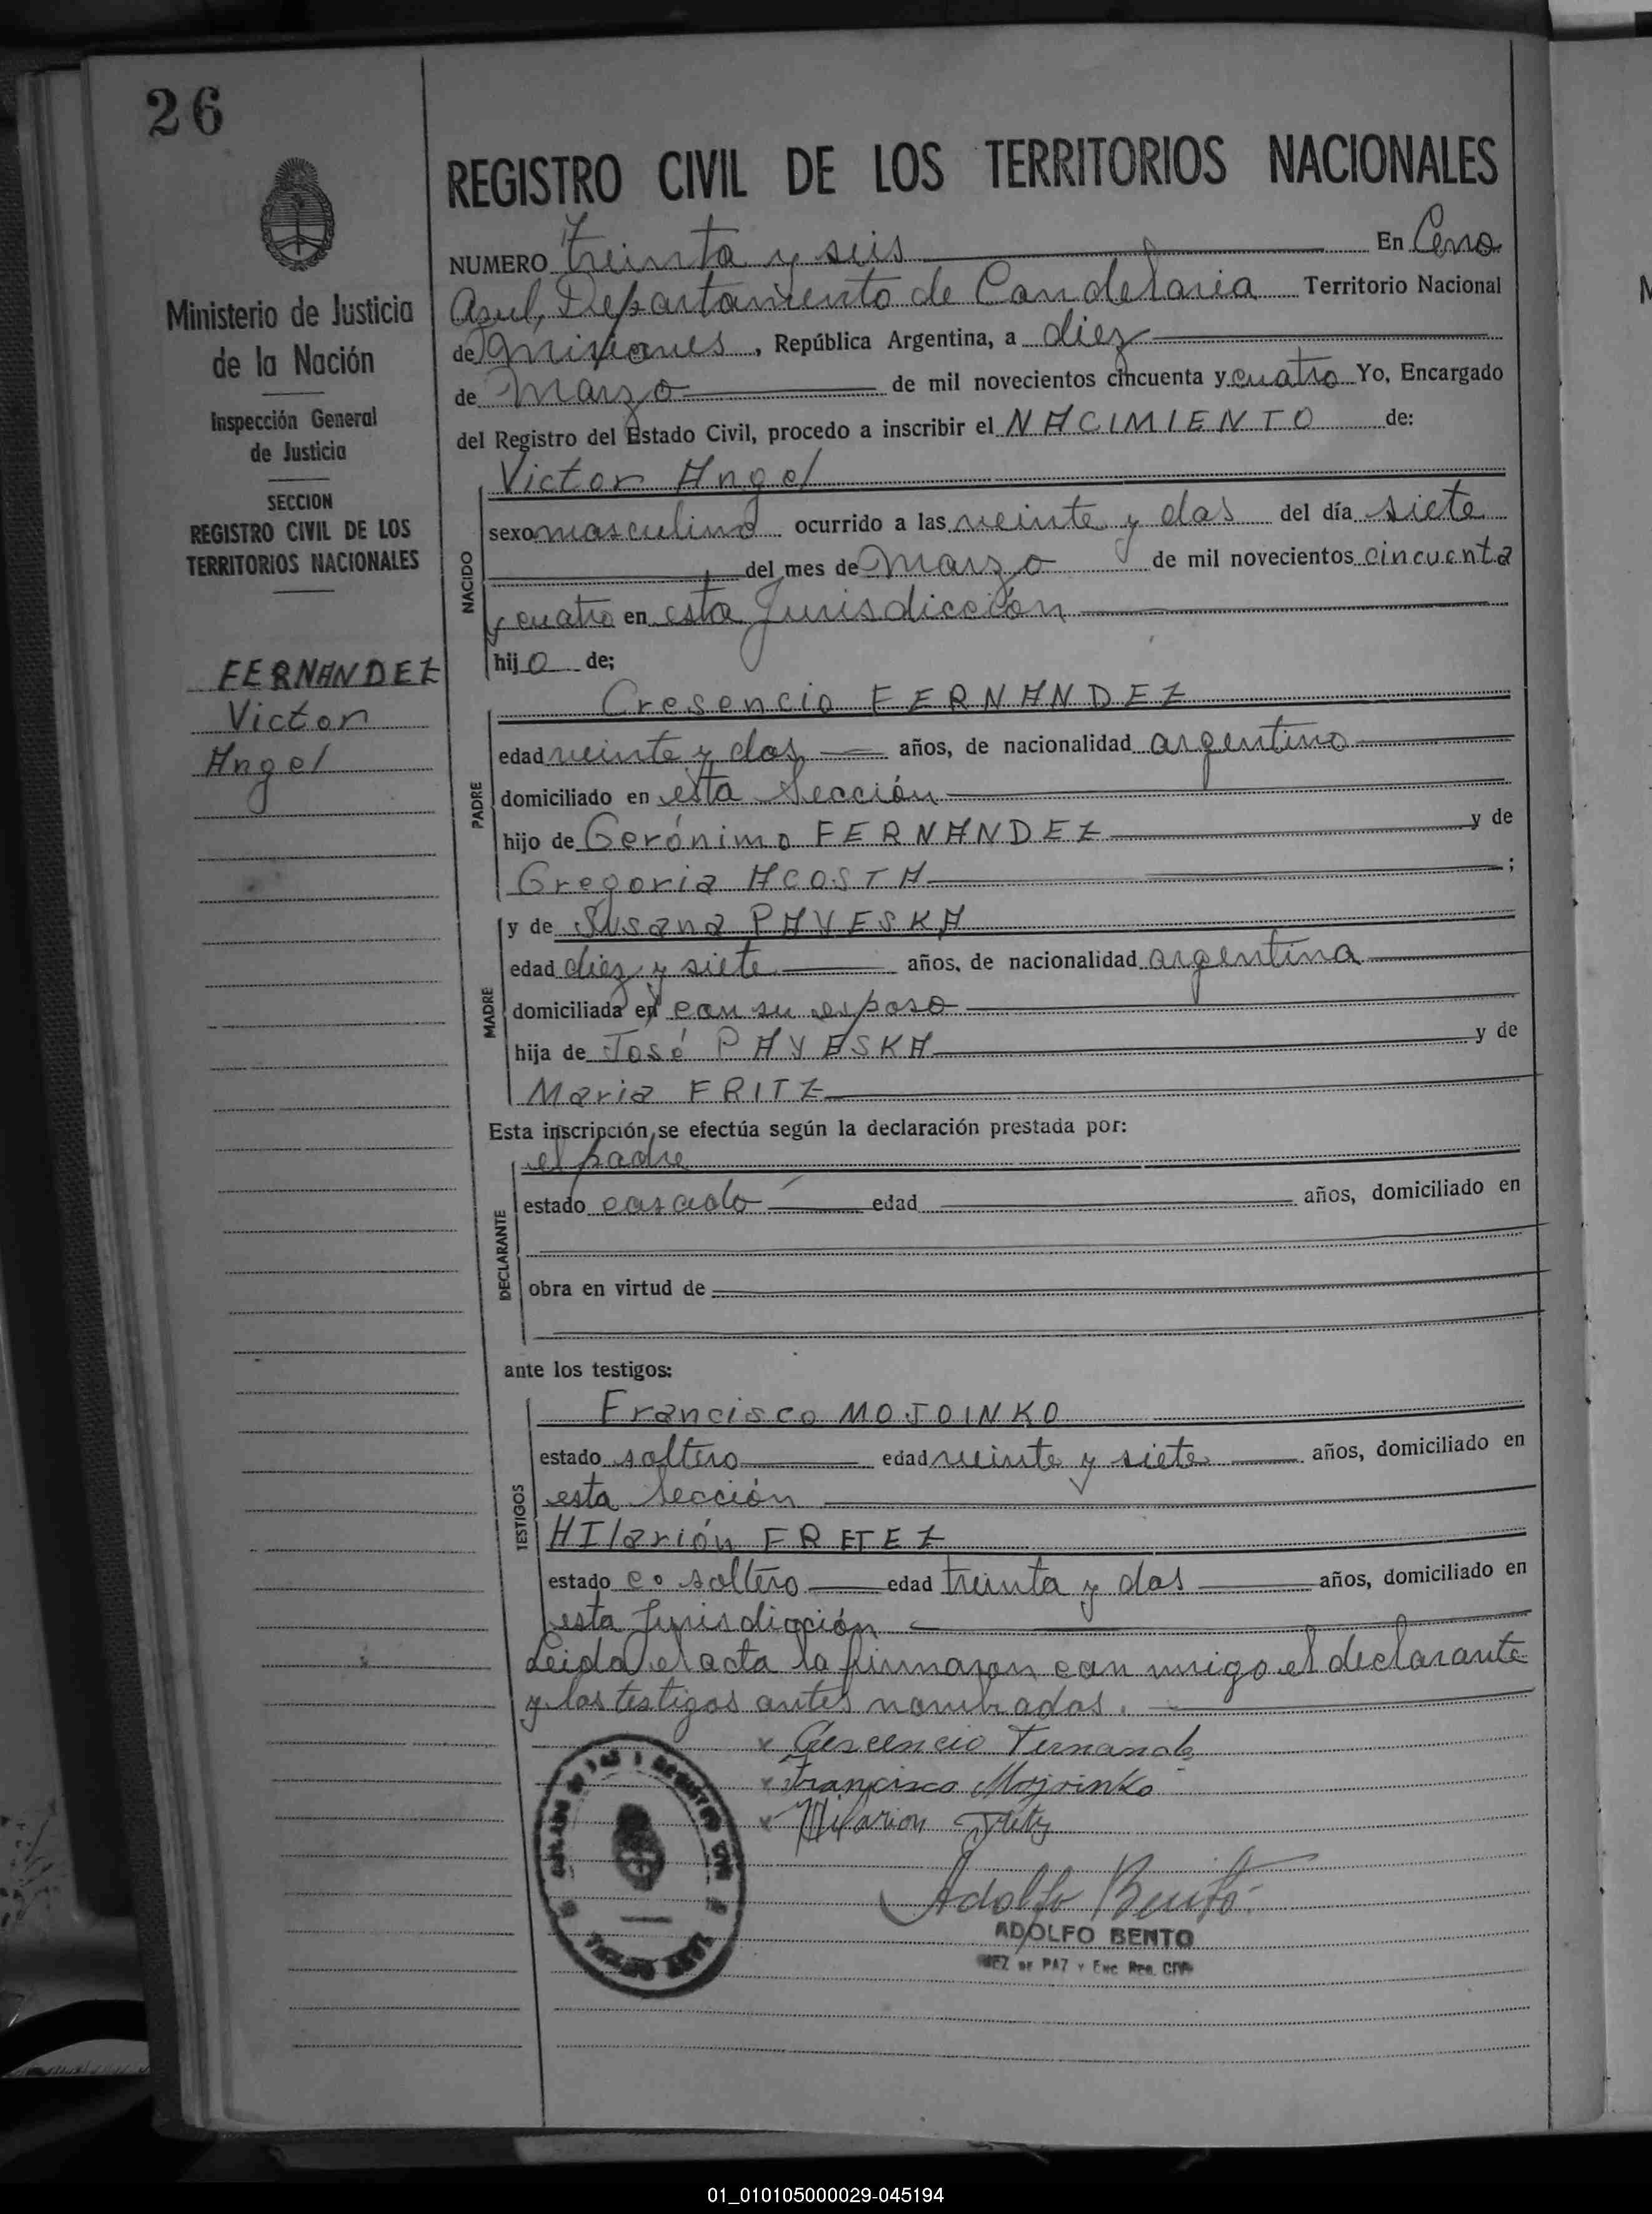 26
REGISTRO CIVIL DE LOS TERRITORIOS NACIONALES
Ministerio de Justicia
de la Nación
Inspección General
de Justicia
SECCION
REGISTRO CIVIL DE LOS
TERRITORIOS NACIONALES
FERNANDEZ
Victor
Angel
NUMERO treinta y seis En Cerro
Azul, Departamento de Candelaria Territorio Nacional
de Misiones, República Argentina, a diez
de Marzo de mil novecientos cincuenta y cuatro Yo, Encargado
del Registro del Estado Civil, procedo a inscribir el NACIMIENTO de:
NACIDO
Victor Angel
sexo masculino ocurrido a las veinte y dos del día siete
del mes de Marzo de mil novecientos cincuenta
y cuatro en esta Jurisdicción
hijo de;
PADRE
Cresencio FERNANDEZ
edad veinte y dos años, de nacionalidad argentino
domiciliado en esta Sección
hijo de Gerónimo FERNANDEZ y de
Gregoria ACOSTA ;
MADRE
y de Susana PAYESKA
edad diez y siete años, de nacionalidad argentina
domiciliada en con su esposo
hija de José PAYESKA y de
Maria FRITZ
Esta inscripción se efectúa según la declaración prestada por:
DECLARANTE
el padre
estado casado edad años, domiciliado en
obra en virtud de
ante los testigos:
TESTIGOS
Francisco MOJOINKO
estado soltero edad veinte y siete años, domiciliado en
esta Sección
HIlarión FRETEZ
estado co soltero edad treinta y dos años, domiciliado en
esta Jurisdicción
Leida el acta la firmaron con migo el declarante
y los testigos antes nombrados.
x Crescencio Fernande
x Francisco Mojoinko
x Hilarion Fretz
Adolfo Bento
ADOLFO BENTO
JUEZ DE PAZ y Enc Reg. Civil
01_010105000029-045194